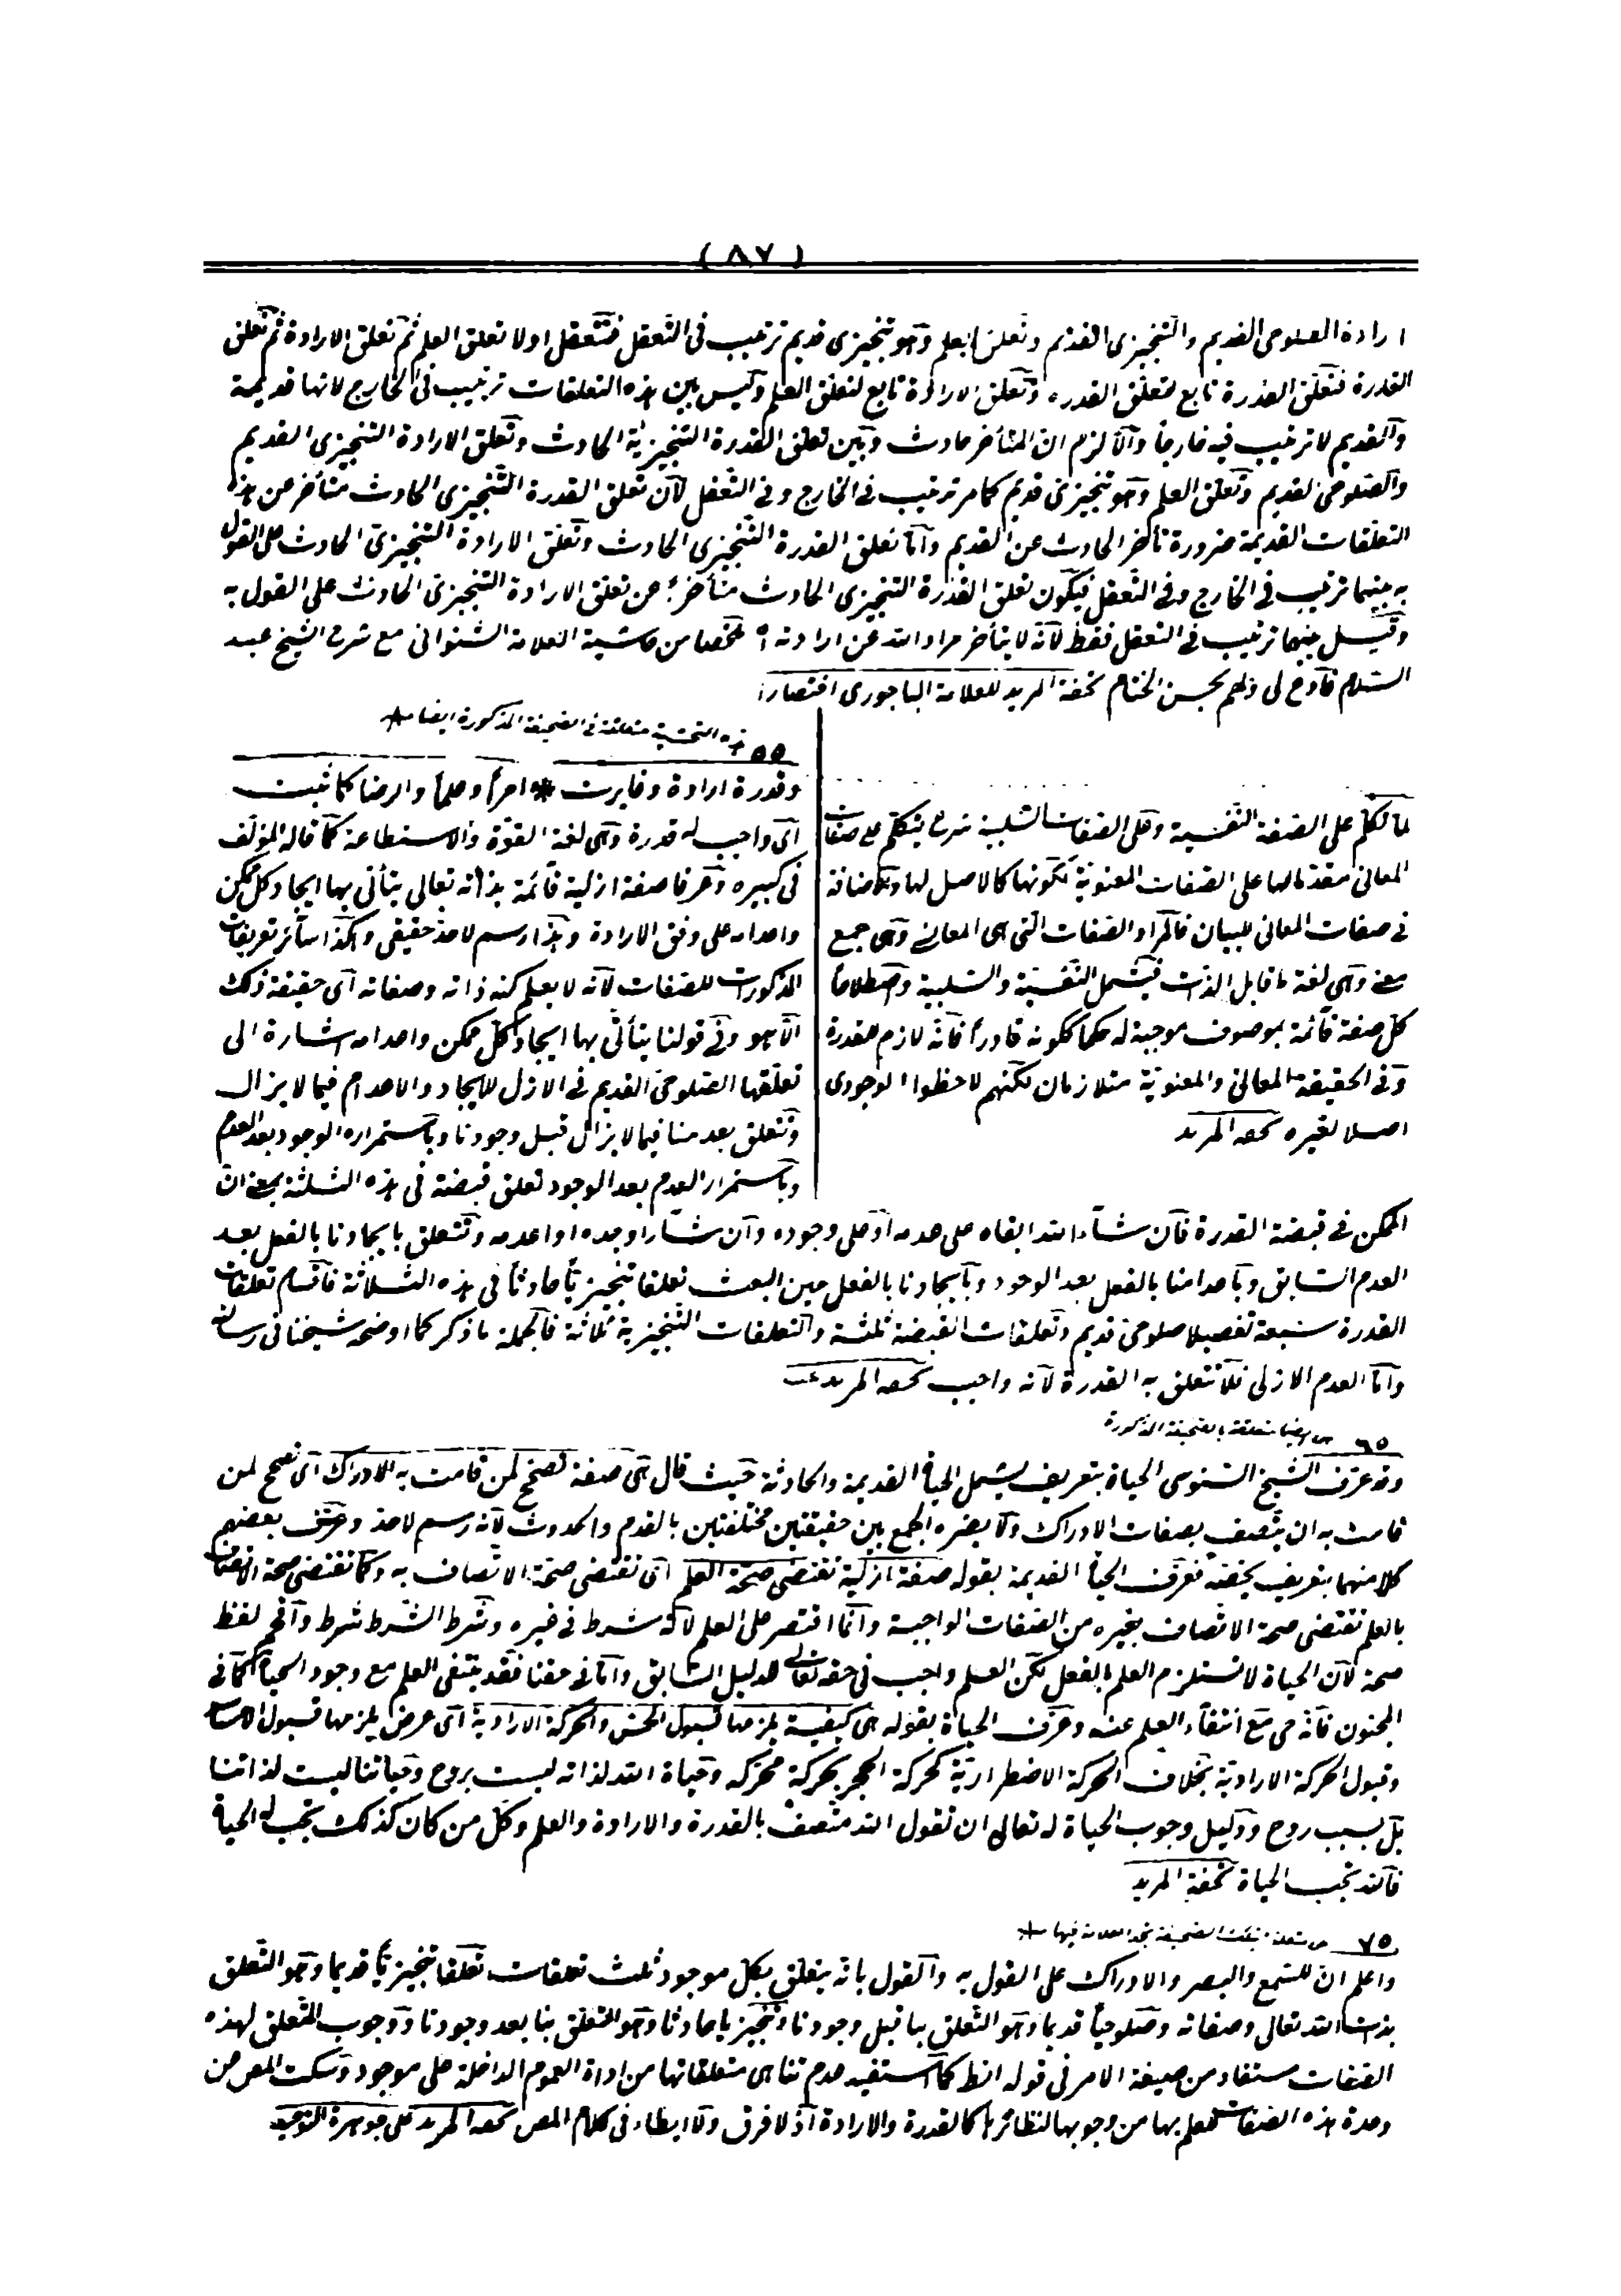 ( ٨٧ )
ارادة الصلوحى القديم والتنجيزى القديم وتعلق العلم وهو تنجيزى قديم ترتيب فى التعقل فتتعقل اولا تعلق العلم ثم تعلق الارادة ثم تعلق
القدرة فتعلق القدرة تابع لتعلق القدره وتعلق الارادة تابع لتعلق العلم وليس بين هذه التعلقات ترتيب فى الخارج لانها قديمة
والقديم لا ترتيب فيه خارجا والا لزم ان المتأخر حادث وبين تعلق القدرة التنجيزية الحادث وتعلق الارادة التنجيزى القديم
والصلوحى القديم وتعلق العلم وهو تنجيزى قديم كما مر ترتيب فى الخارج وفى التعقل لان تعلق القدرة التنجيزى الحادث متأخر عن هذه
التعلقات القديمة ضرورة تأخر الحادث عن القديم واما تعلق القدرة التنجيزى الحادث وتعلق الارادة التنجيزى الحادث على القول
به بينهما ترتيب فى الخارج وفى التعقل فيكون تعلق القدرة التنجيزى الحادث متأخرا عن تعلق الارادة التنجيزى الحادث على القول به
وقيل بينهما ترتيب فى التعقل فقط لانه لا يتأخر مراد الله عن ارادته اه ملخصا من حاشية العلامة الشنوانى مع شرح الشيخ عبد
السلام فادع لى ولهم بحسن الختام تحفة المريد للعلامة الباجورى اختصارا
لما تكلم على الصفة النفسية وعلى الصفات السلبية شرع يتكلم على صفات
المعانى مقدما لها على الصفات المعنوية لكونها كالاصل لها والاضافة
فى صفات المعانى للبيان فالمراد الصفات التى هى المعانى وهى جمع
معنى وهى لغة ما قابل الذات فيشمل النفسية والسلبية واصطلاحا
كل صفة قائمة بموصوف موجبة له حكما ككونه قادرا فانه لازم للقدرة
وفى الحقيقة المعانى والمعنوية متلازمان لكنهم لاحظوا الوجودى
اصلا لغيره تحفه المريد
٥٥ هذه التحشية متعلقة فى الصحيفة المذكورة ايضا *
وقدرة ارادة وغايرت * امرا وعلما والرضا كما ثبت
اى واجب له قدرة وهى لغة القوة والاستطاعة كما قاله المؤلف
فى كبيره وعرفا صفة ازلية قائمة بذاته تعالى يتأتى بها ايجاد كل ممكن
واعدامه على وفق الارادة وهذا رسم لا حد حقيقى وهكذا سائر تعريفات
المذكورات للصفات لانه لا يعلم كنه ذاته وصفاته اى حقيقة ذلك
الا هو وفى قولنا يتأتى بها ايجاد كل ممكن واعدامه اشارة الى
تعلقها الصلوحى القديم فى الازل للايجاد والاعدام فيما لا يزال
وتتعلق بعدمنا فيما لا يزال قبل وجودنا وباستمراره الوجود بعد العدم
وباستمرار العدم بعد الوجود تعلق قبضة فى هذه الثلثة بمعنى ان
الممكن فى قبضة القدرة فان شاء الله ابقاه على عدمه او على وجوده وان شاء اوجده او اعدمه وتتعلق بايجادنا بالفعل بعد
العدم السابق وباعدامنا بالفعل بعد الوجود وبايجادنا بالفعل حين البعث تعلقا تنجيزيا حادثا فى هذه الثلاثة فاقسام تعلقات
القدرة سبعة تفصيلا صلوحى قديم وتعلقات القبضة ثلثة والتعلقات التنجيزية ثلاثة فالجملة ما ذكر كما اوضحه شيخنا فى رسالة
واما العدم الازلى فلا تتعلق به القدرة لانه واجب تحفه المريد
٦٥ ايضا متعلقة بالصحيفة المذكورة
وقد عرف الشيخ السنوسى الحياة بتعريف يشمل الحياة القديمة والحادثة حيث قال هى صفة تصحح لمن قامت به الادراك اى تصحح لمن
قامت به ان يتصف بصفات الادراك ولا يضره الجمع بين حقيقتين مختلفتين بالقدم والحدوث لانه رسم لا حد وعرف بعضهم
كلا منهما بتعريف يخصه فعرف الحياة القديمة بقوله صفة ازلية تقتضى صحة العلم اى تقتضى صحة الاتصاف به وكما تقتضى صحة الاتصاف
بالعلم تقتضى صحة الاتصاف بغيره من الصفات الواجبة وانما اقتصر على العلم لانه شرط فى غيره وشرط الشرط شرط واقحم لفظ
صحة لان الحياة لا تستلزم العلم بالفعل لكن العلم واجب فى حقه تعالى للدليل السابق واما فى حقنا فقد ينتفى العلم مع وجود الحياة كما فى
المجنون فانه حى مع انتفاء العلم عنه وعرف الحياة بقوله هى كيفية يلزمها قبول الحس والحركة الارادية اى عرض يلزمها قبول الاحساس
وقبول الحركة الارادية بخلاف الحركة الاضطرارية كحركة الحجر بحركة محركه وحياة الله لذاته ليست بروح وحياتنا ليست لذاتنا
بل بسبب روح ودليل وجوب الحياة له تعالى ان تقول الله متصف بالقدرة والارادة والعلم وكل من كان كذلك تجب له الحياة
فالله تجب الحياة تحفة المريد
٧٥
واعلم ان للسمع والبصر والادراك على القول به والقول بانه يتعلق بكل موجود ثلث تعلقات تعلقا تنجيزيا قديما وهو التعلق
بذات الله تعالى وصفاته وصلوحيا قديما وهو التعلق بنا قبل وجودنا وتنجيزيا حادثا وهو التعلق بنا بعد وجودنا ووجوب التعلق لهذه
الصفات مستفاد من صيغة الامر فى قوله انط كما استفيد عدم تناهى متعلقاتها من اداة العموم الداخلة على موجود وسكت المص عن
وحدة هذه الصفات للعلم بها من وجوبها لنظائرها كالقدرة والارادة اذ لا فرق ولا ايطاء فى كلام المص تحفه المريد على جوهرة التوحيد